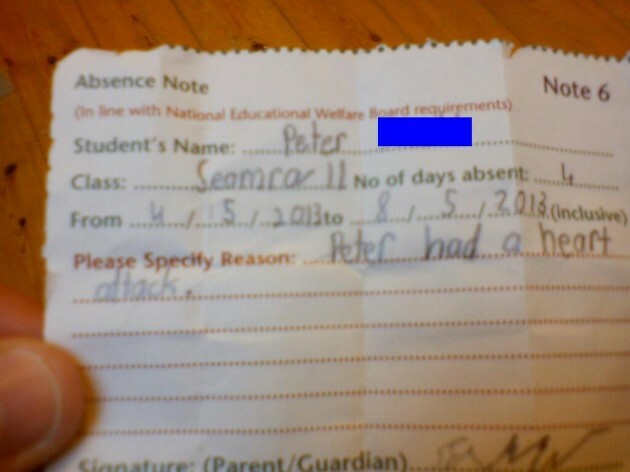 Absence Note
Note 6
(In line with National Educational Welfare Board requirements)
Student's Name: Peter
Class: Seomra 11 No of days absent: 4
From 4/5/2013 to 8/5/2013 (inclusive)
Please Specify Reason: Peter had a heart
attack.
Signature: (Parent/Guardian)